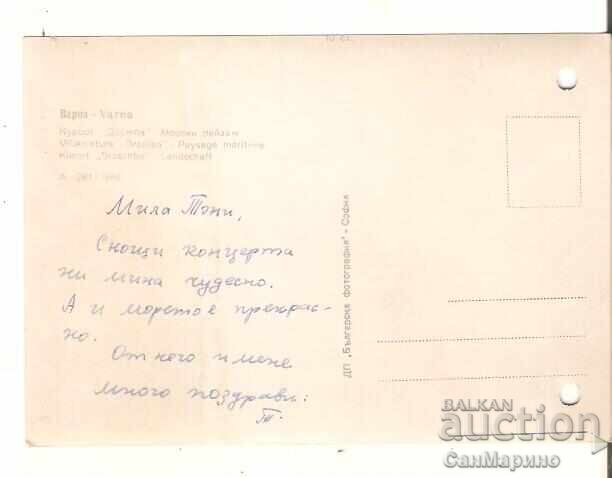 10 ст.
Варна - Varna
Курорт „Дружба" - Морски пейзаж
Villégiature "Drouiba" - Paysage maritime
Kurort „Drushba" - Landschaft
Мила Тони,
Снощи концерта
ни мина чудесно.
А и морето е прекрас-
но.
От него и мене
много поздрави:
Т.
ДП „Българска фотография" - София
BALKAN
auction
СанМарино